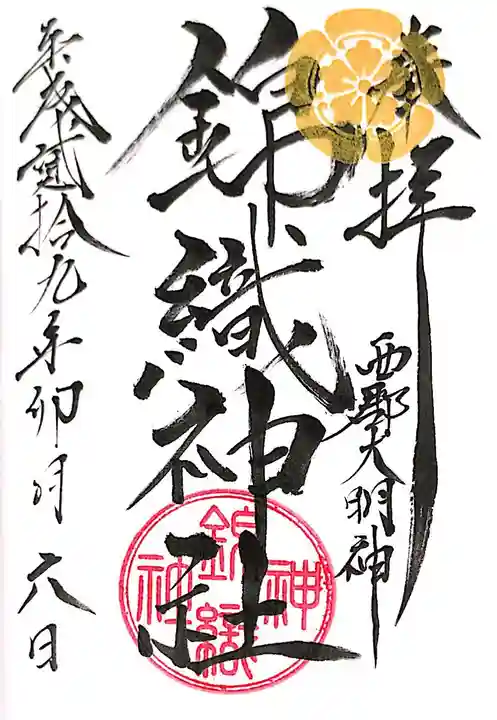 奉拝
西郷大明神
錦織神社
錦織神社
平成貳拾九年卯月六日